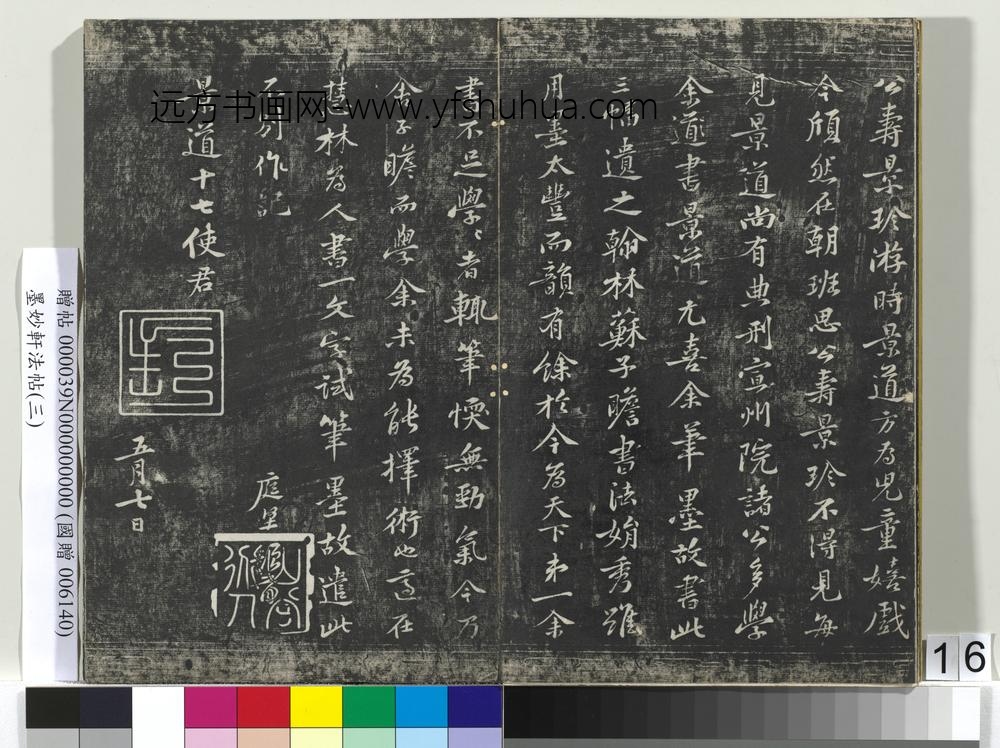 公壽景珍游時景道方為兒童嬉戲
今頎然在朝班思公壽景珍不得見每
見景道尚有典刑宣州院諸公多學
余道書景道尤喜余筆墨故書此
三幅遺之翰林蘇子瞻書法娟秀雖
用墨太豐而韻有餘於今為天下第一余
書不足學學者輒筆愞無勁氣今乃
舍子瞻而學余未為能擇術也適在
慧林為人書一文字試筆墨故遣此
不別作記
庭堅
景道十七使君
五月七日
远方书画网-www.yfshuhua.com
贈帖 000039N000000000 (國贈 006140)
墨妙軒法帖(三)
16